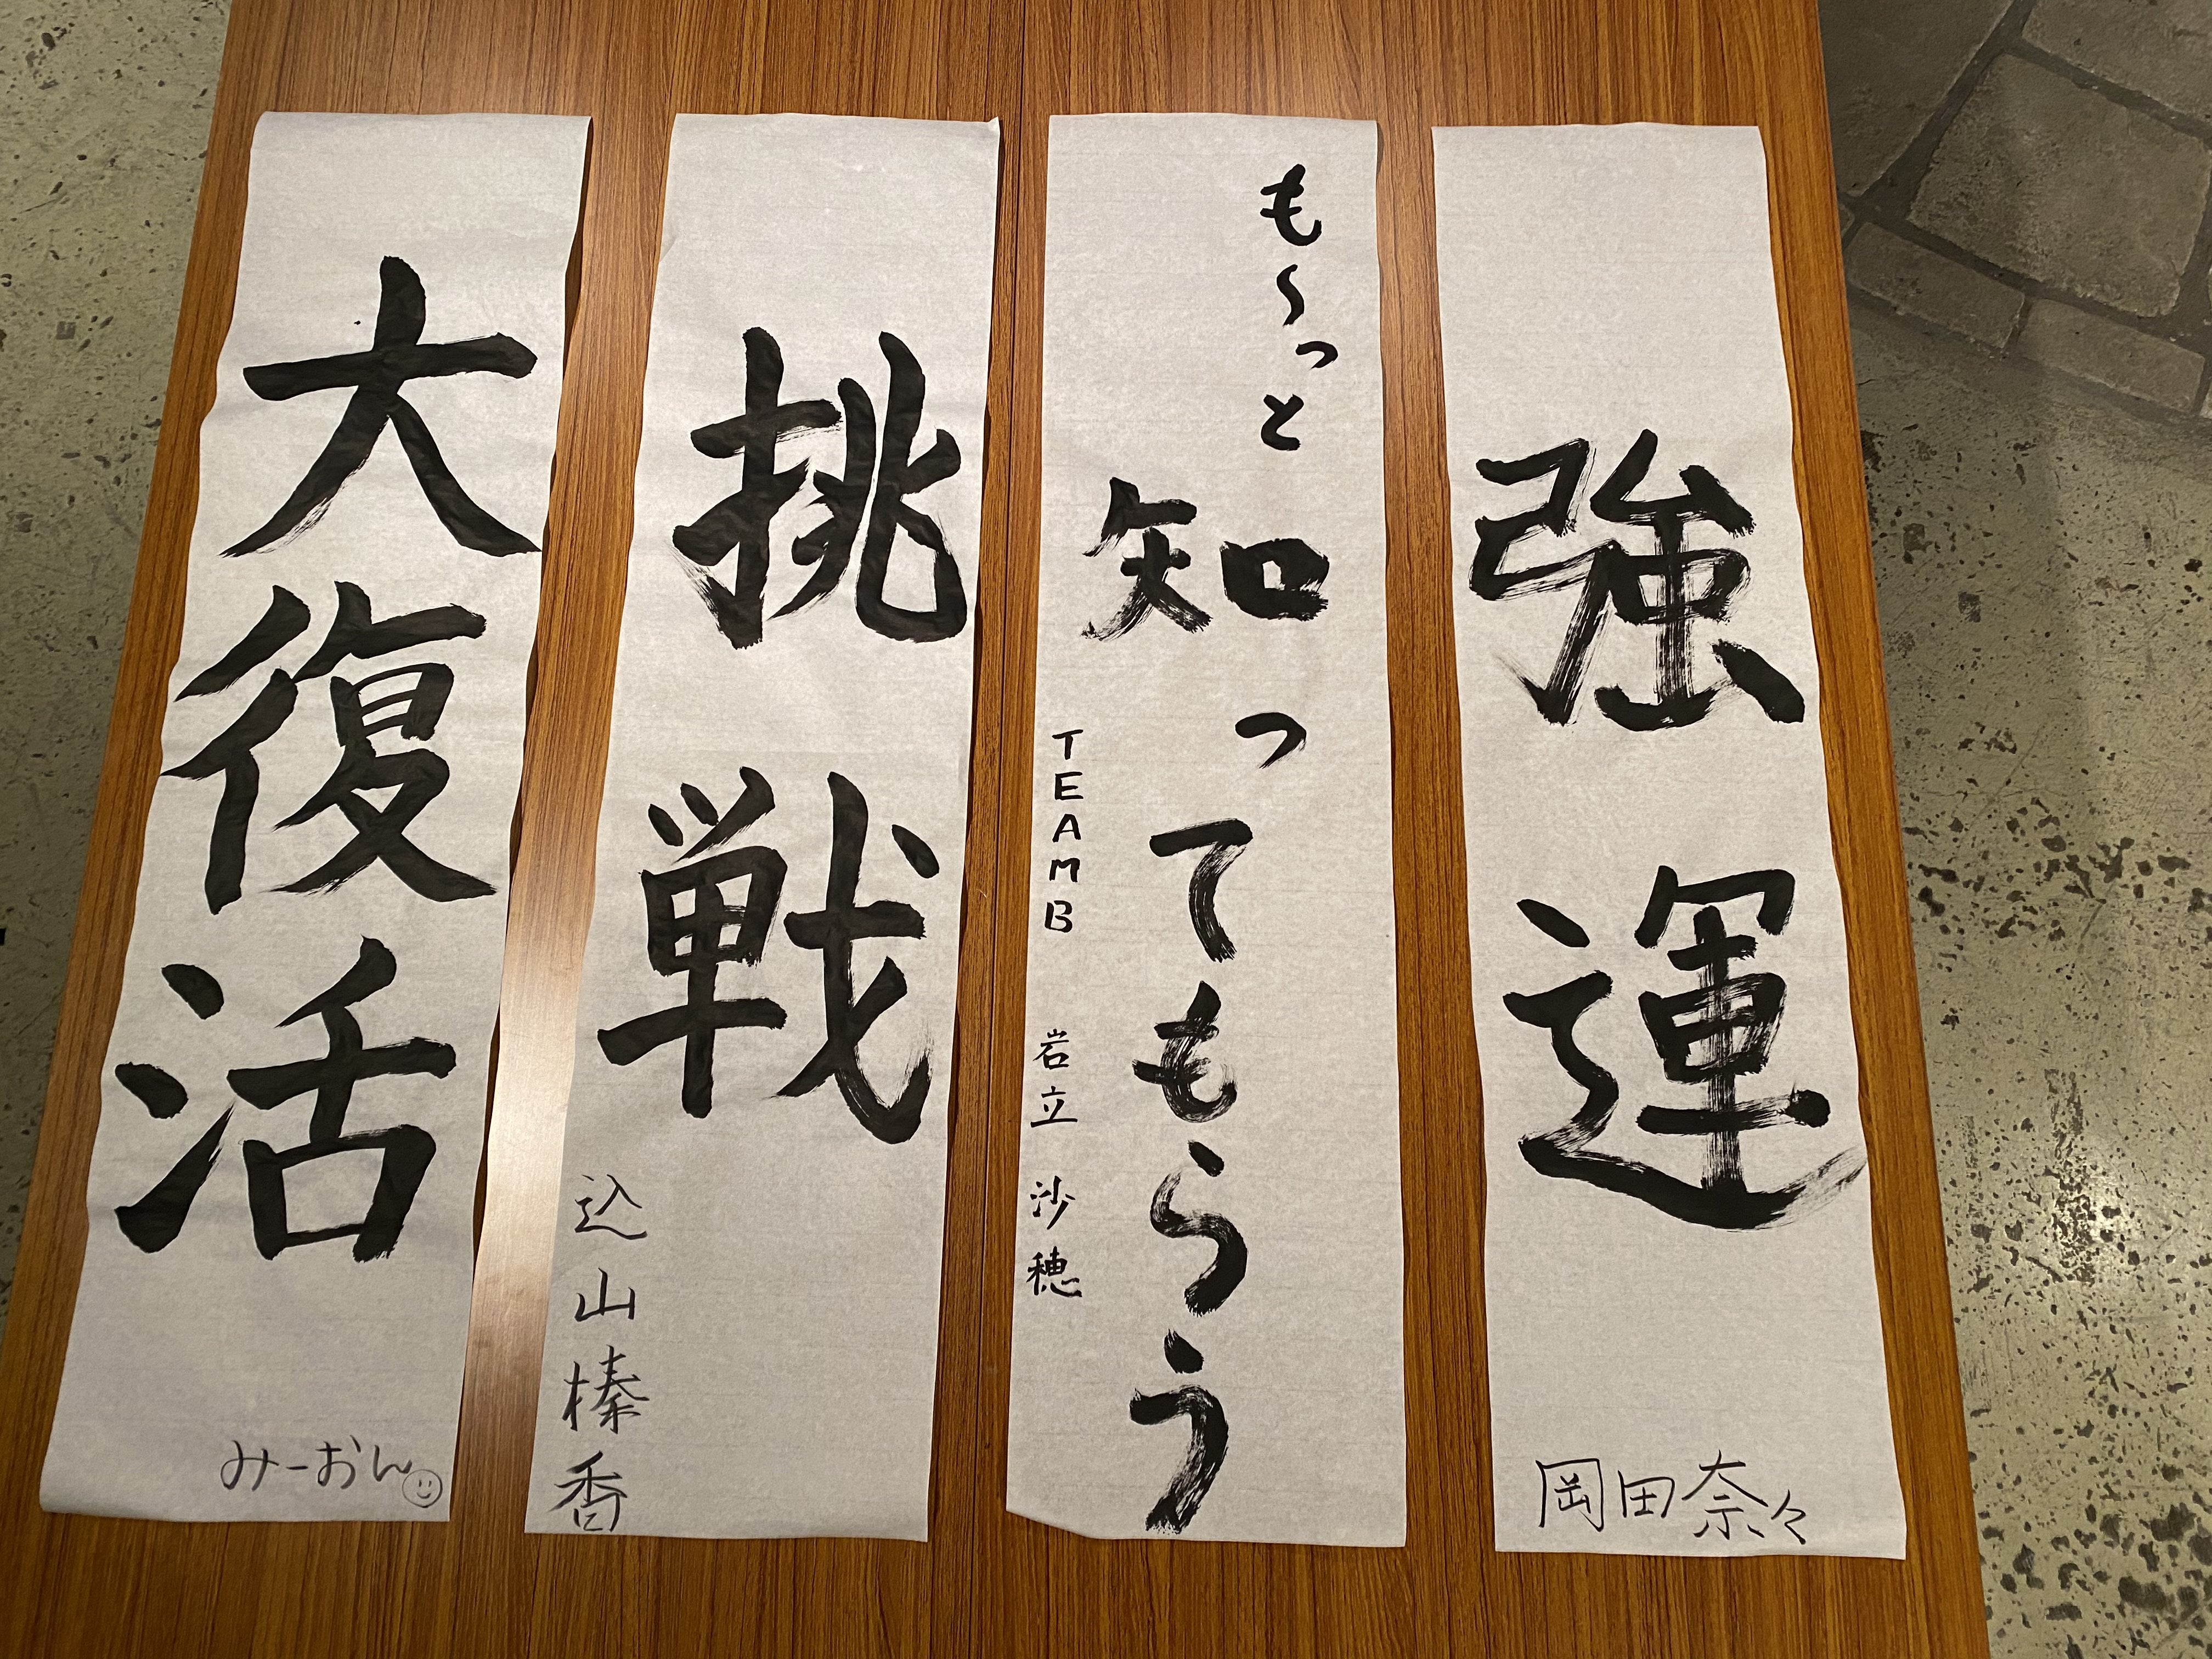 強運
岡田奈々
も〜っと
知ってもらう
TEAMB 岩立 沙穂
挑戦
込山榛香
大復活
みーおん